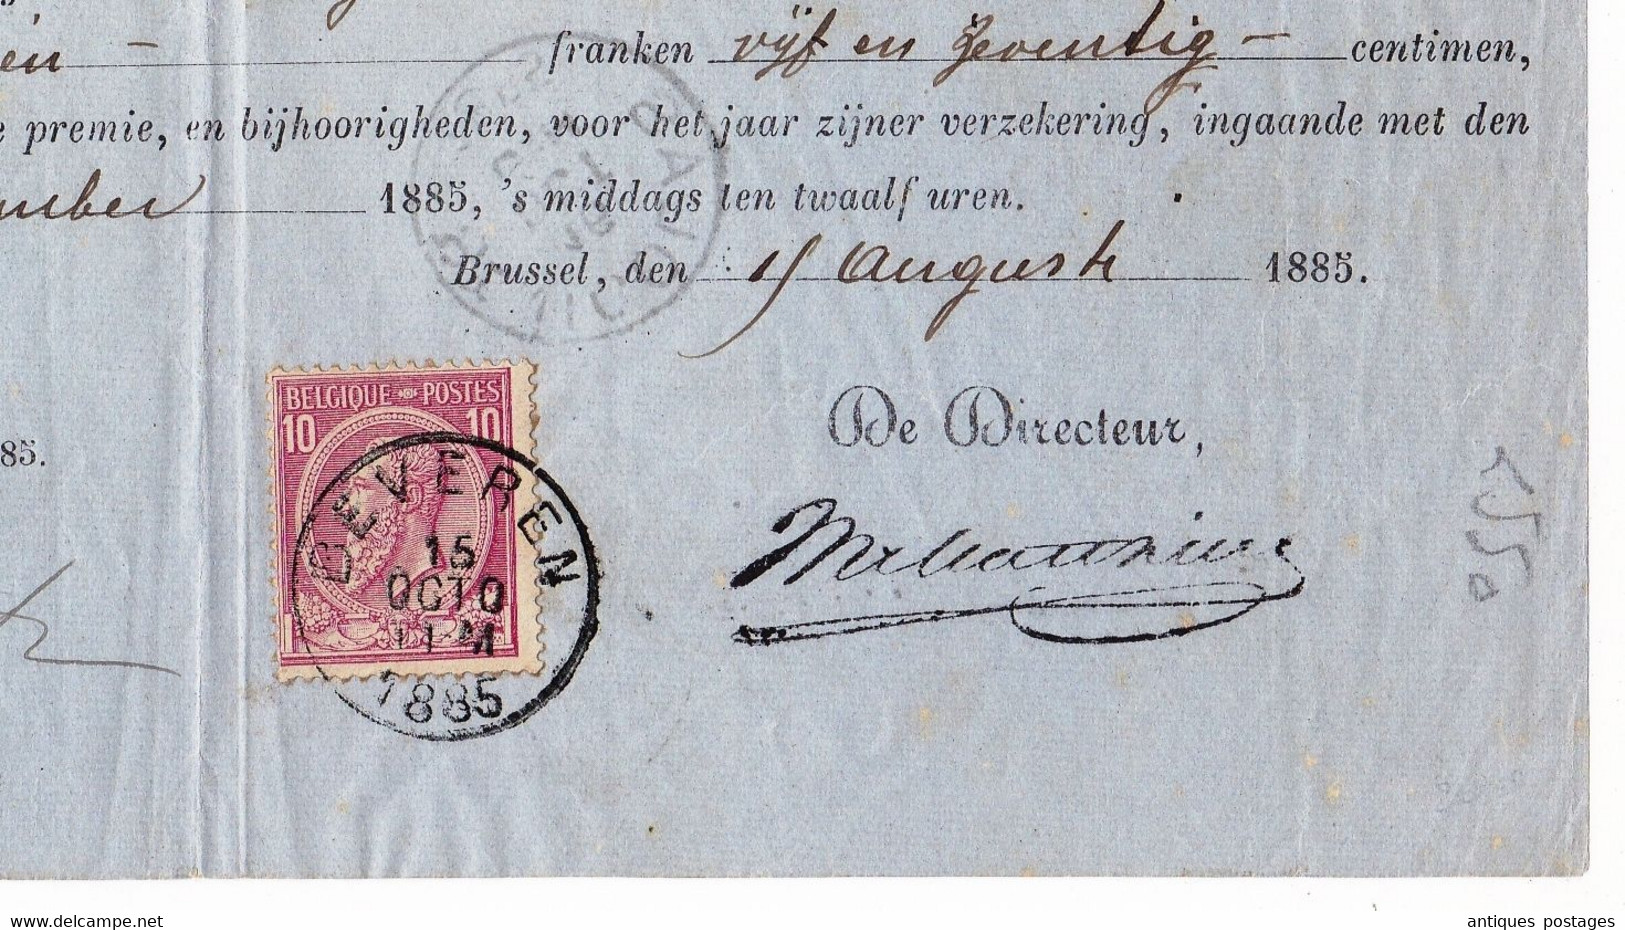 en — franken vijf en zeventig — centimen,
premie, en bijhoorigheden, voor het jaar zijner verzekering, ingaande met den
mber 1885, 's middags ten twaalf uren.
Brussel, den 15 Augusti 1885.
BELGIQUE POSTES
10 10
De Directeur,
85.
SEVEREN
15
OCTO
11-M
1885
delcampe.net
antiques postages